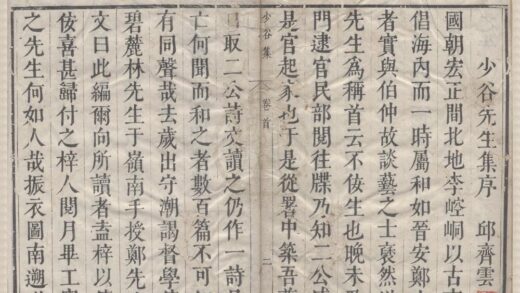 少谷先生集序 邱齊雲
國朝宏正間北地李崆峒以古
倡海內而一時屬和如晉安鄭
者實與伯仲故談藝之士裒然
先生爲稱首云不佞生也晚未
門逮官民部閱往牒乃知二公
是官起家也于是從署中築吾
少谷集 卷首 二
取二公詩文讀之仍作一詩
亡何聞而和之者數百篇不可
有同聲哉去歲出守潮謁督學
碧麓林先生于嶺南手授鄭先
文曰此編爾向所讀者盍梓以
佞喜甚歸付之梓人閱月畢工
之先生何如人哉振衣圖南遡